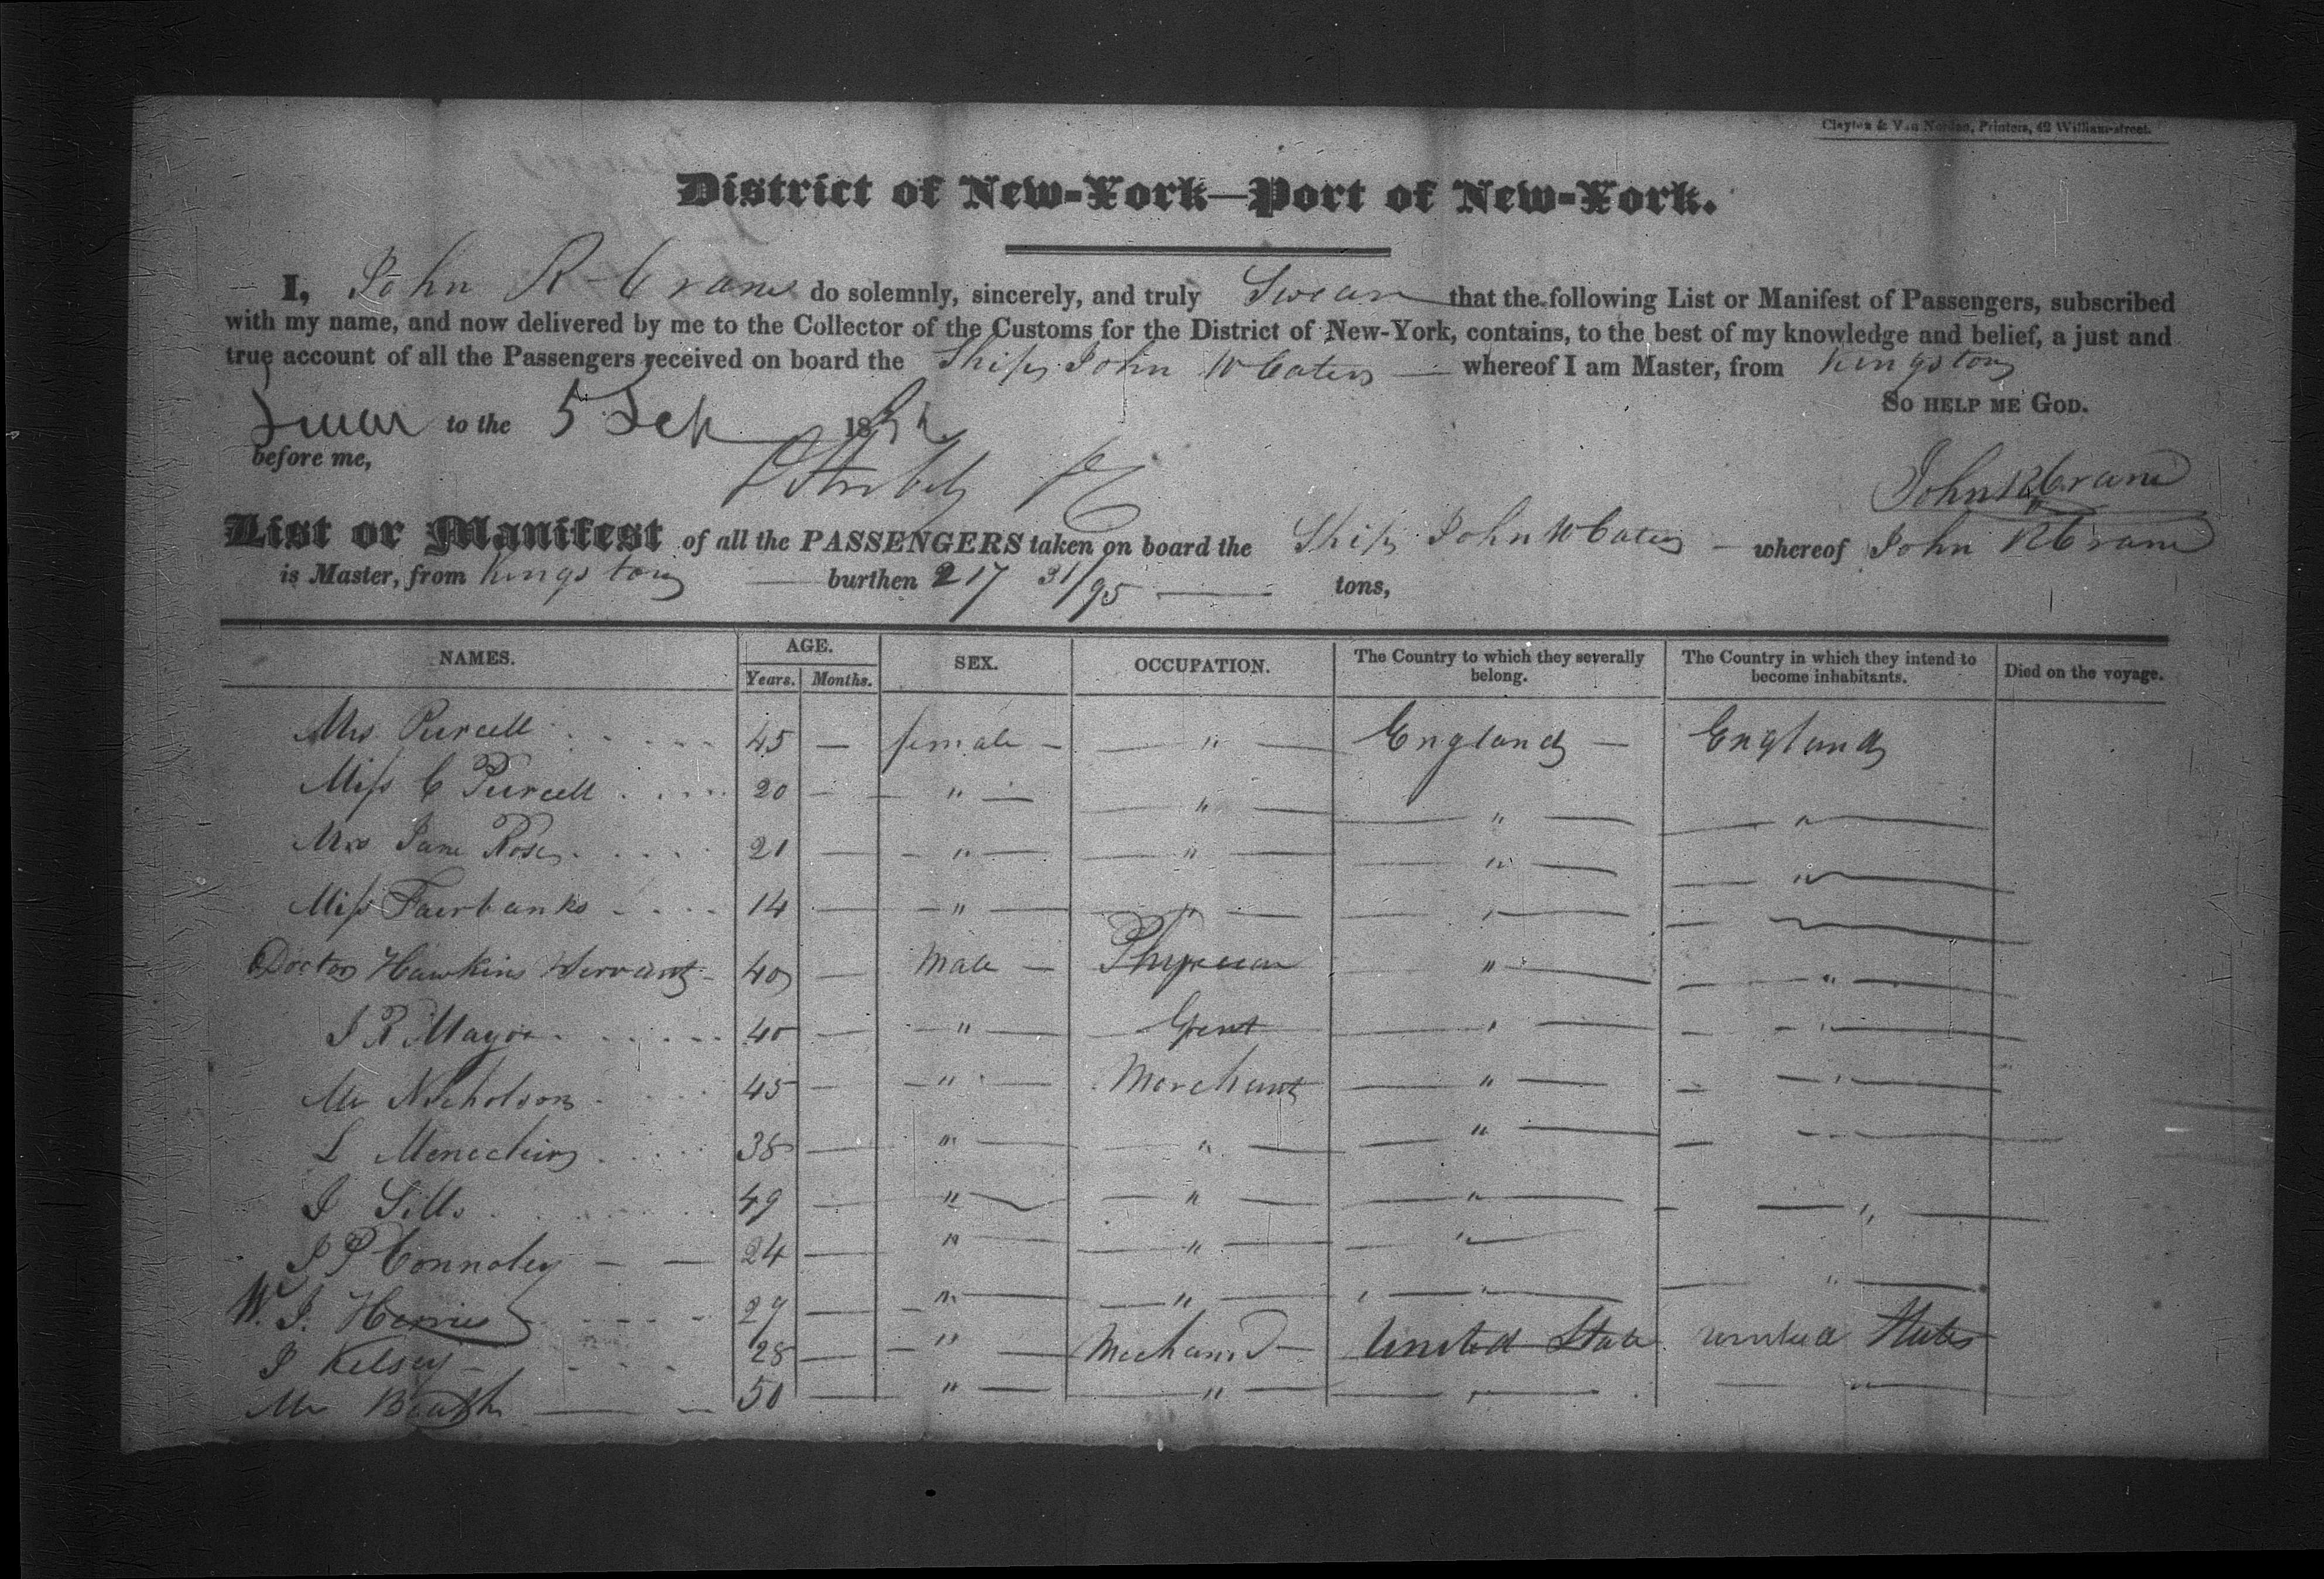 Clayton & Van Norden, Printers, 42 William-street.
District of New-York—Port of New-York.
I, John R Crane do solemnly, sincerely, and truly Swear that the following List or Manifest of Passengers, subscribed
with my name, and now delivered by me to the Collector of the Customs for the District of New-York, contains, to the best of my knowledge and belief, a just and
true account of all the Passengers received on board the Ship John W Cater whereof I am Master, from Kingston
So help me God.
Swear to the 5 Sep 183
before me,
John R Crane
List or Manifest of all the PASSENGERS taken on board the Ship John W Cater whereof John R Crane
is Master, from Kingston burthen 217 31/95 tons,
NAMES. AGE. Years. Months. SEX. OCCUPATION. The Country to which they severally belong. The Country in which they intend to become inhabitants. Died on the voyage.
Mrs Purcell 45 — female — " — England — England
Miss C Purcell 20 — " — " — " — "
Mrs Jane Rose 21 — " — " — " — "
Miss Fairbanks 14 — " — " — " —
Doctor Hawkins Servant 40 — Male — Physician " — "
J R Mayor 40 — " — Gent " — "
Mr Nicholson 45 — " — Merchant — " — "
L 38 — " — " — " — "
J Sills 49 — " — " — " — "
J P Connoley 24 — " — " — " — "
W. J. Harris 27 — " — " — " — "
J Kelsey 28 — " — Mechanic — United State United States
Mr Booth 50 — " — " — " — "